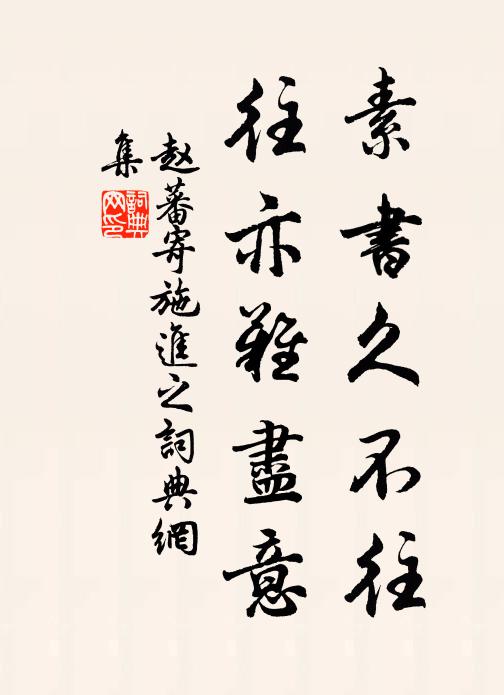 素書久不往
往亦難盡意
赵蕃寄施進之詞典網
集
詞典
网印